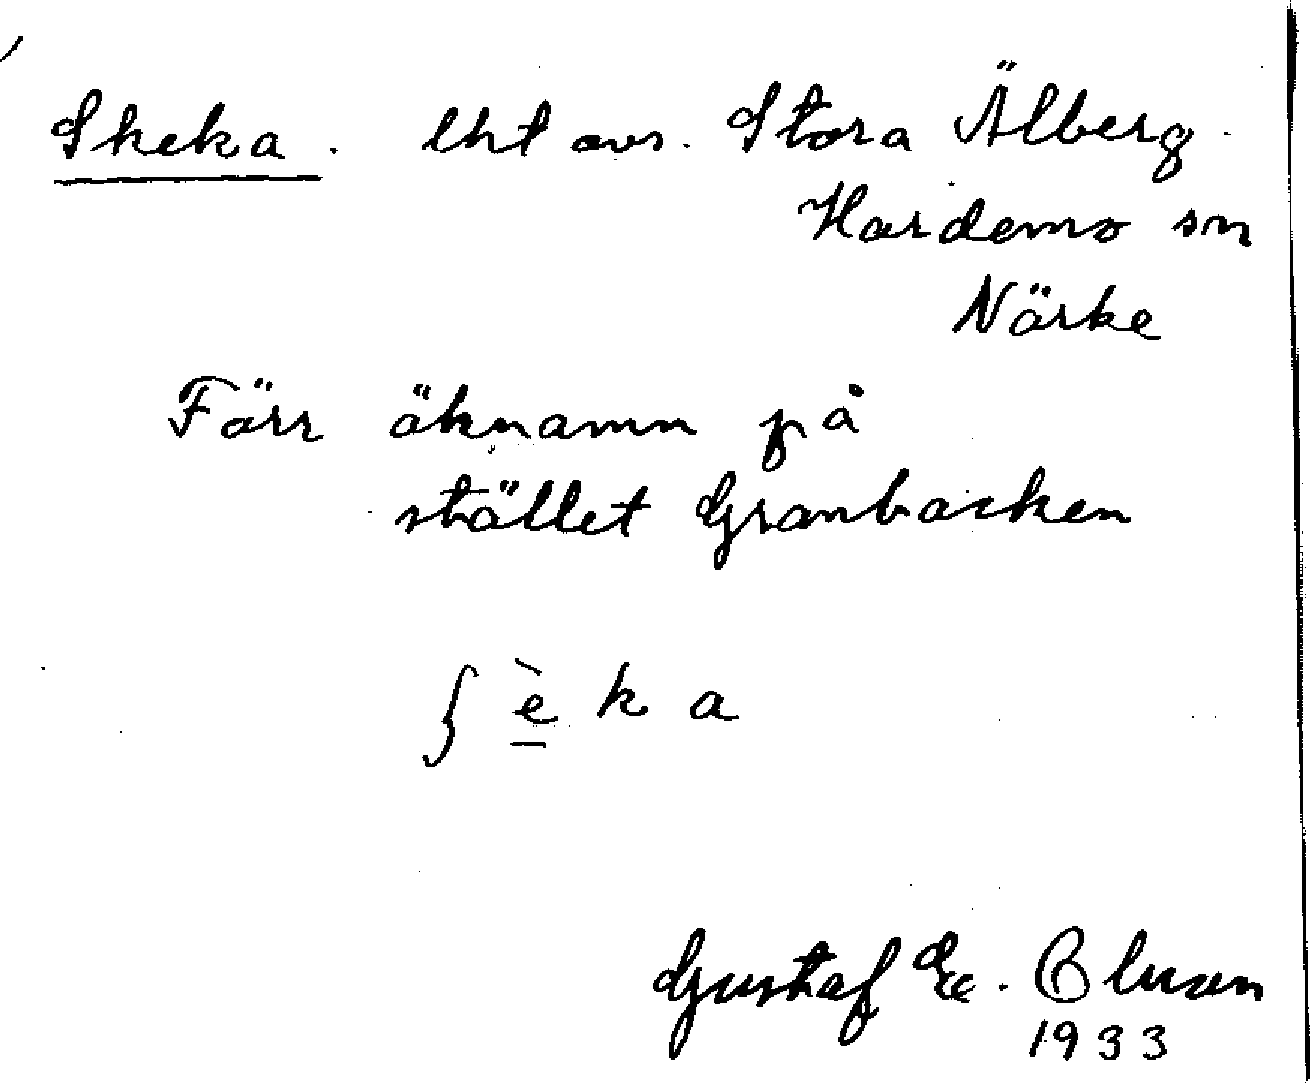 Skeka. lht avs. Stora Älberg.
Hardemo sn
Närke
Förr öknamn på
stället Granbacken
ʃ è k a
Gustaf E.
1933